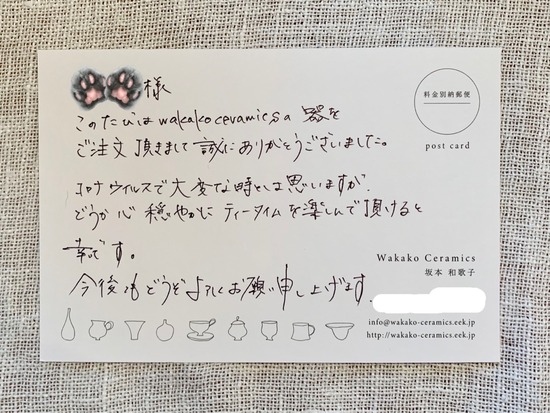 様
このたびは wakako ceramics の 器を
ご注文 頂きまして 誠にありがとうございました。
コロナウイルスで大変な時とは思いますが、
どうか心 穏やかに ティータイムを楽しんで頂けると
幸いです。
今後ともどうぞよろしくお願い申し上げます。
料金別納郵便
post card
Wakako Ceramics
坂本 和歌子
info@wakako-ceramics.eek.jp
http://wakako-ceramics.eek.jp